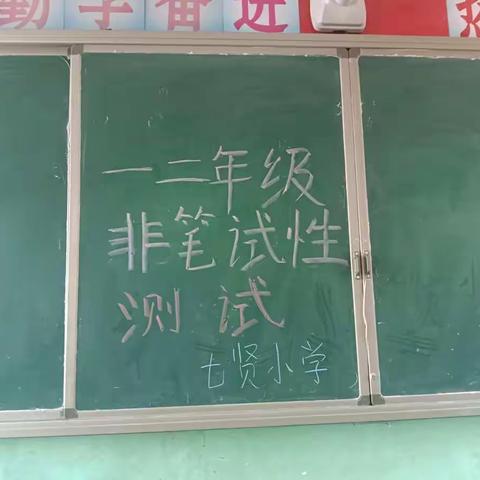 勤学奋进
一二年级
非笔试性
测试
七贤小学